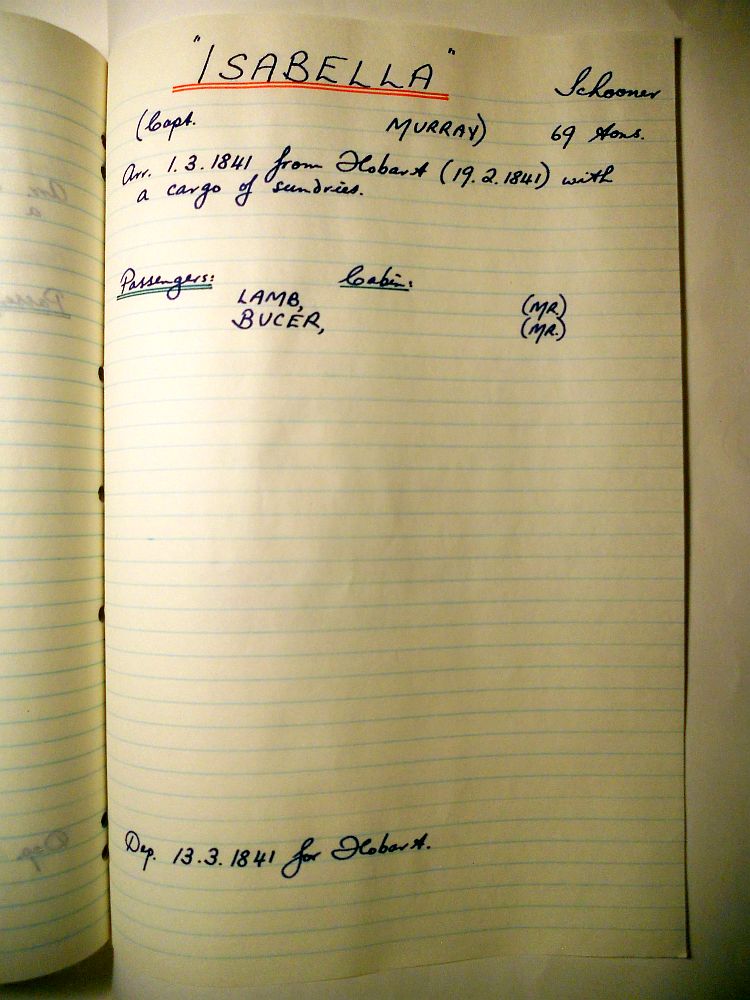 "ISABELLA"
Schooner
(Capt. MURRAY) 69 tons.
Arr. 1.3.1841 from Hobart (19.2.1841) with
a cargo of sundries.
Passengers: Cabin:
LAMB, (MR)
BUCER, (MR.)
Dep. 13.3.1841 for Hobart.